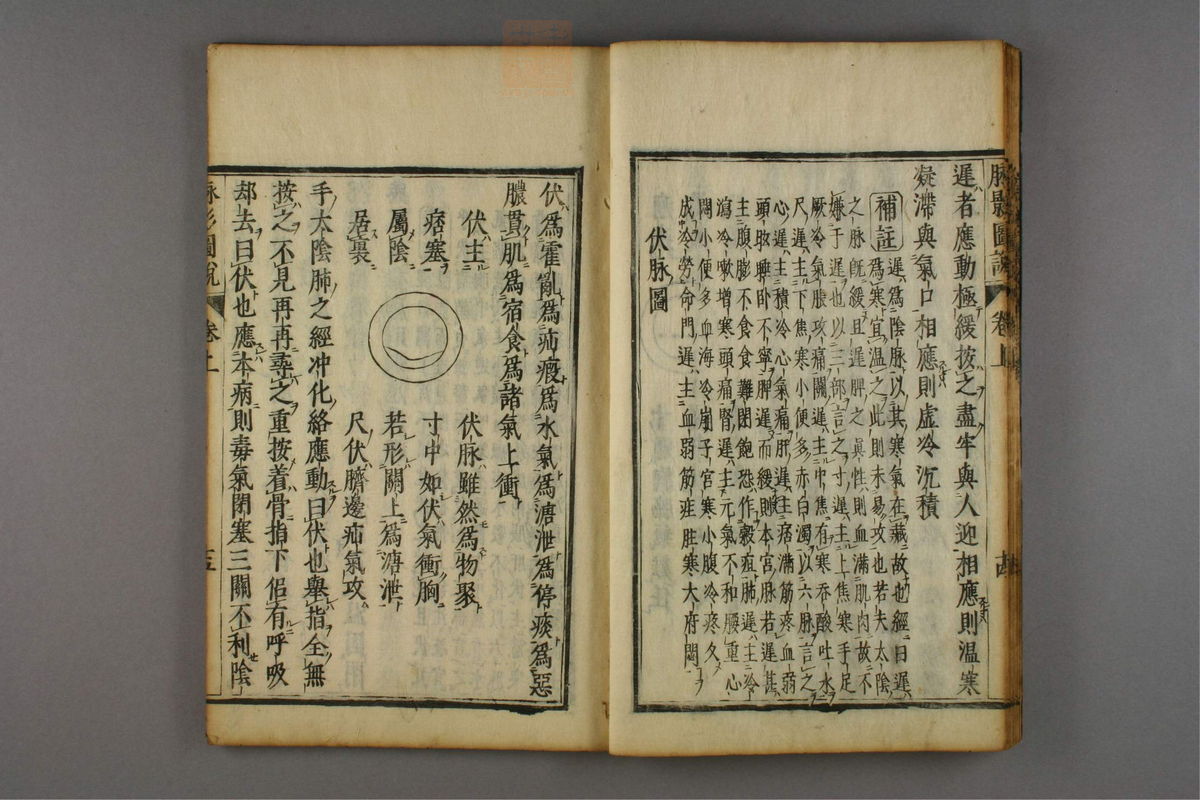 脉影圖説 卷上
遲者應動極緩按之盡牢與人迎相應則温寒
凝滯與氣口相應則虚冷沉積
補註
遲爲陰脉以其寒氣在藏故也經曰遲
爲寒宜温之此則未易攻也若夫太陰
之脉既緩且遲脾之眞性則血滿肌肉故不
嫌于遲也以三部言之寸遲主上焦寒手足
厥冷氣脹攻痛關遲主中焦有寒吞酸吐水
尺遲主下焦寒小便多赤白濁以六脉言之
心遲主積冷心氣痛肝遲主痞滿筋疼血弱
頭眩睡卧不寧脾遲而緩則本宫脉若遲甚
主腹膨不食食難閉飽恐作穀疽肺遲主冷
瀉冷嗽增寒頭痛腎遲主元氣不和腰重心
悶小便多血海冷崩子宫寒小腹冷疼久
成冷勞命門遲主血弱筋疰胜寒大府悶
伏脉圖
伏爲霍亂爲疝瘕爲水氣爲溏泄爲停痰爲惡
膿貫肌爲宿食爲諸氣上衝
伏主
痞塞
屬陰
居裏
伏脉雖然爲物聚
寸中如伏氣衝胸
若形關上爲溏泄
尺伏臍邊疝氣攻
手太陰肺之經冲化絡應動曰伏也舉指全無
按之不見再再尋之重按着骨指下侣有呼吸
却去曰伏也應本病則毒氣閉塞三關不利陰
脉影圖説 卷上